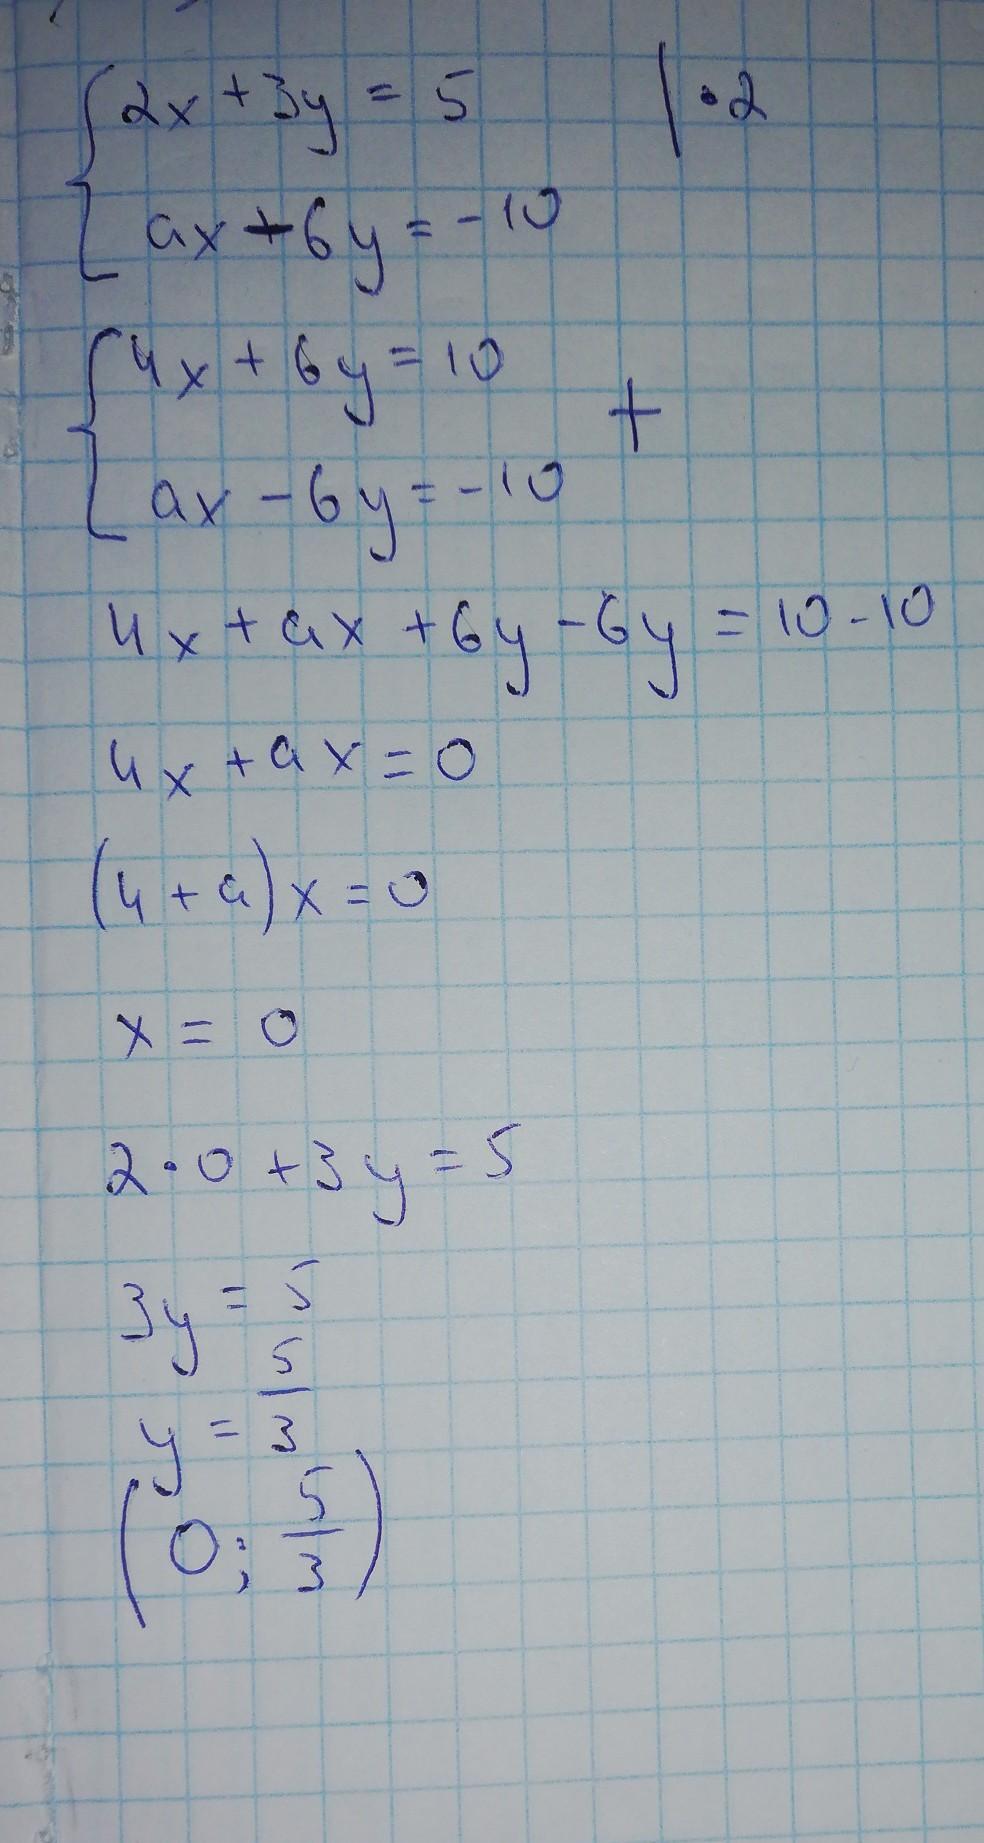 2x + 3y = 5 | • 2
ax + 6y = -10
4x + 6y = 10
+
ax - 6y = -10
4x + ax + 6y - 6y = 10 - 10
4x + ax = 0
(4 + a) x = 0
x = 0
2 • 0 + 3y = 5
3y = 5
y = 5/3
(0; 5/3)